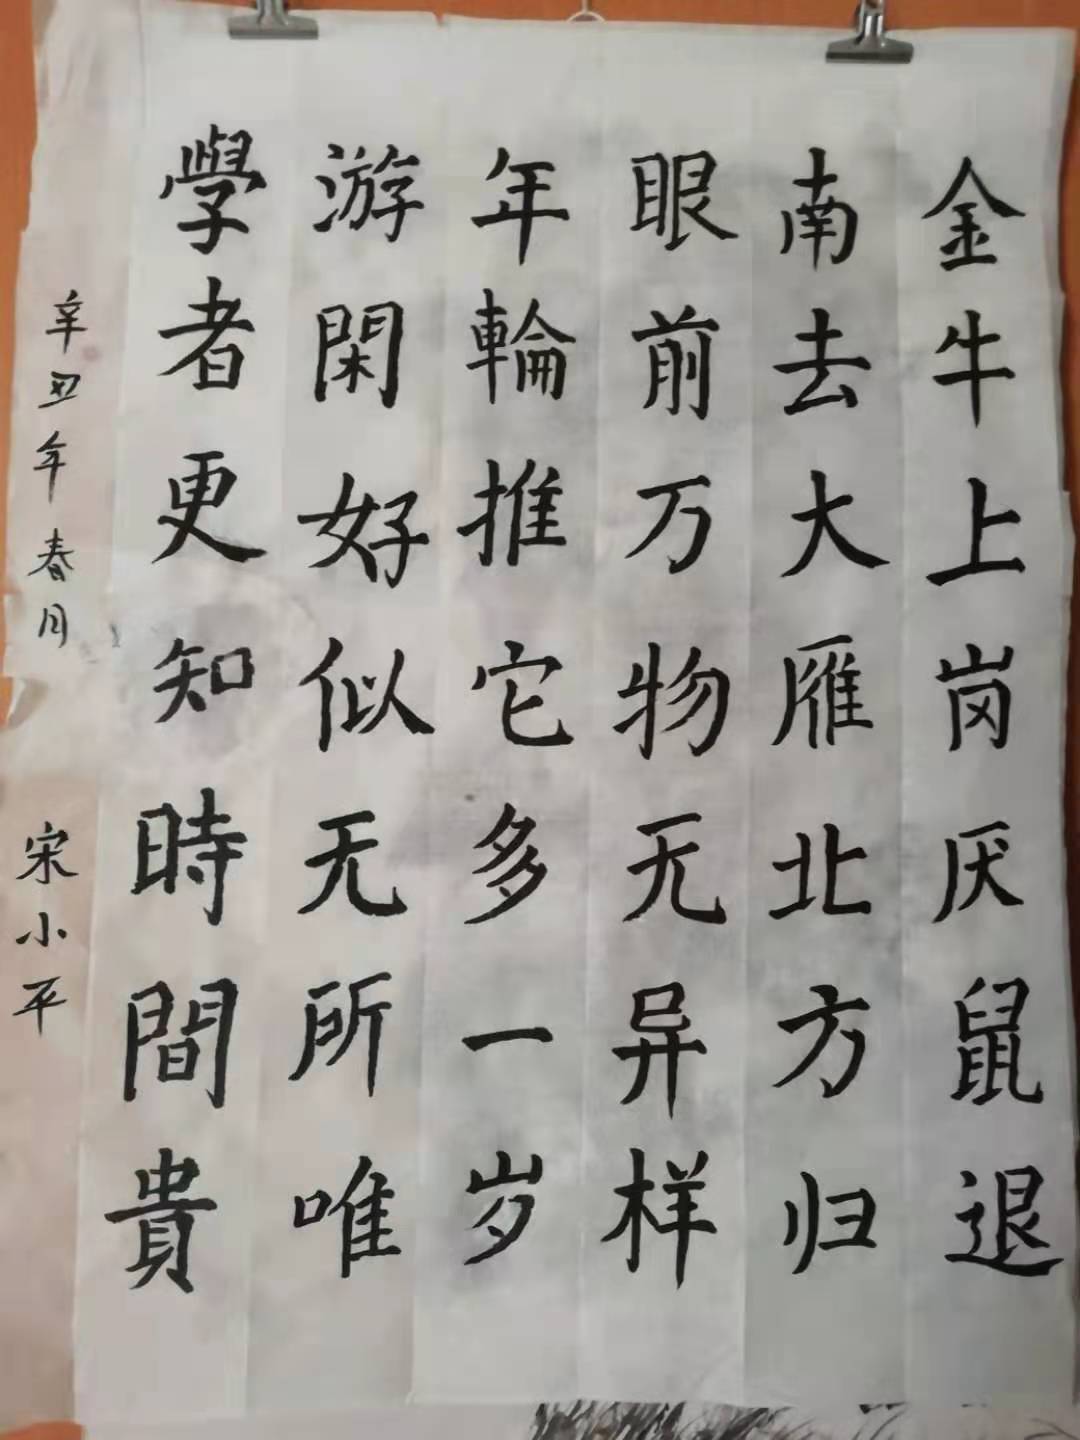 金牛上岗厌鼠退
南去大雁北方归
眼前万物无异样
年輪推它多一岁
游閑好似无所唯
學者更知時間貴
辛丑年春月
宋小平